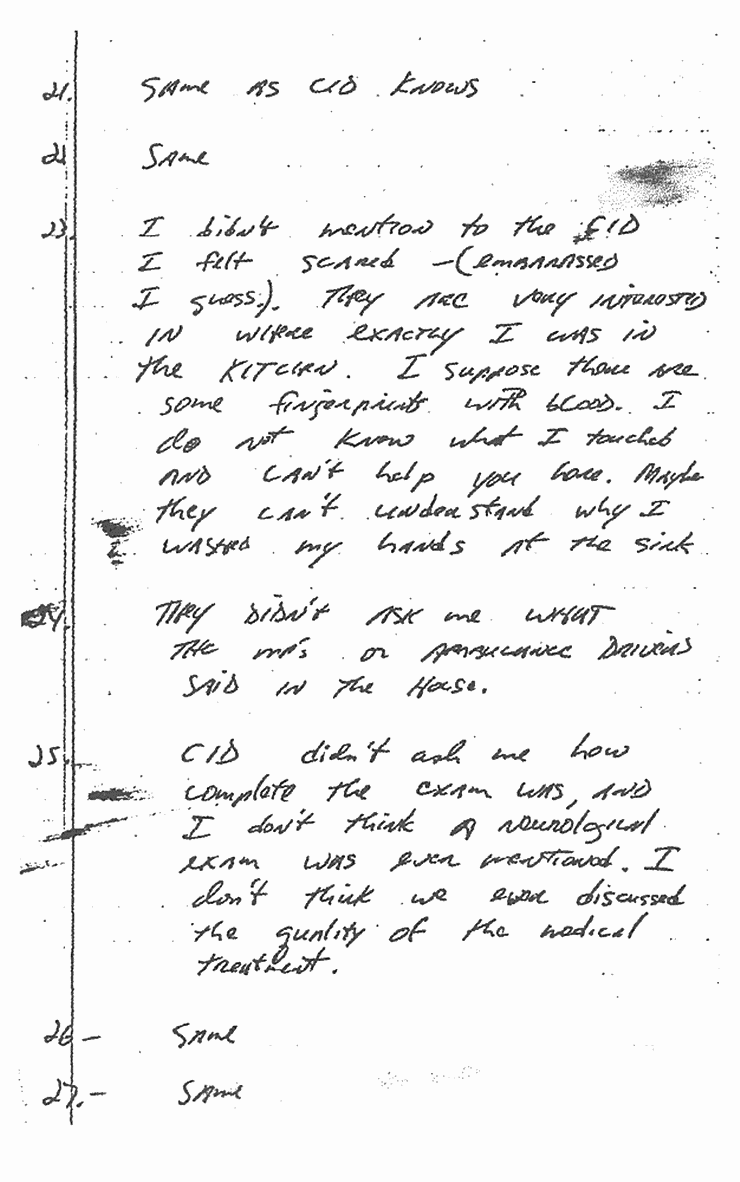 21. SAme AS CID KNOWS
21 SAme
23. I didn't mention to the CID
I felt scared —(embarrassed
I guess.). They are very interested
in where exactly I was in
the kitchen. I suppose there are
some fingerprints with blood. I
do not know what I touched
and can't help you here. Maybe
they can't understand why I
washed my hands at the sink
24. They didn't ask me what
the MP's or ambulance drivers
said in the house.
25. CID didn't ask me how
complete the exam was, and
I don't think a neurological
exam was ever mentioned. I
don't think we ever discussed
the quality of the medical
treatment.
26 — SAme
27. — SAme